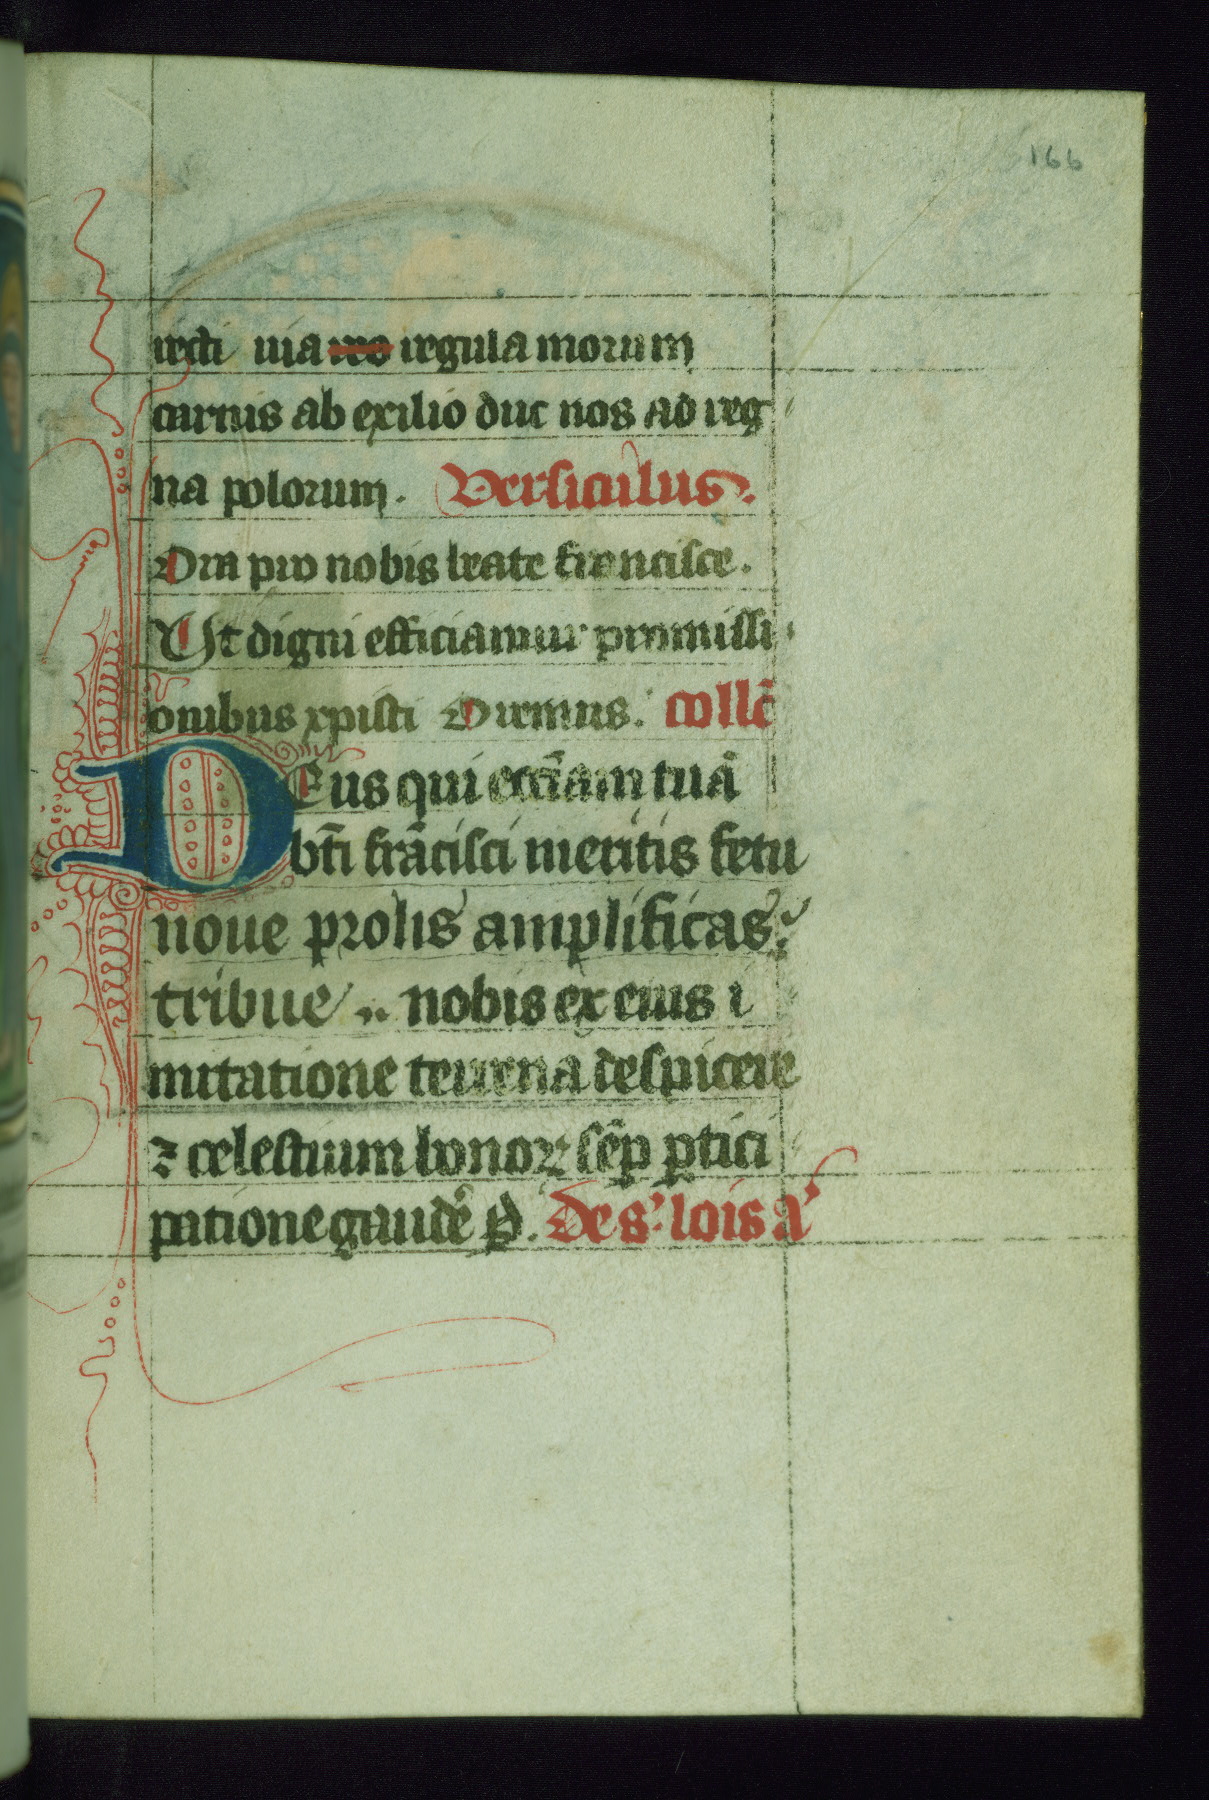 166
recti uia reo regula morum
carnis ab exilio duc nos ad reg
na polorum. Versiculus.
Ora pro nobis beate francisce.
Ut digni efficiamur promissi
onibus xpisti Oremus. collc̄
Deus qui eccl̄iam tuā
bt̄i frācisci meritis fetu
noue prolis amplificas
tribue .. nobis ex eius i
mitatione terrena despicere
⁊ celestium bonoꝝ sēp ꝑtici
patione gaudē ꝑ. de s. lois a